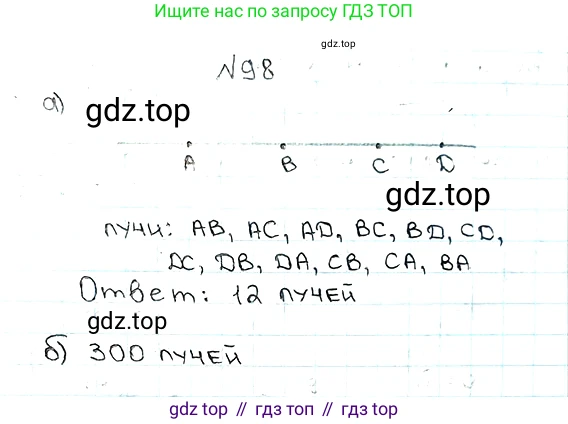 Ищите нас по запросу ГДЗ ТОП
gdz.top
№98
а)
gdz.top
A B C D
gdz.top
лучи: AB, AC, AD, BC, BD, CD,
DC, DB, DA, CB, CA, BA
Ответ: 12 лучей
gdz.top
б) 300 лучей
gdz.top // гдз топ // гдз.топ